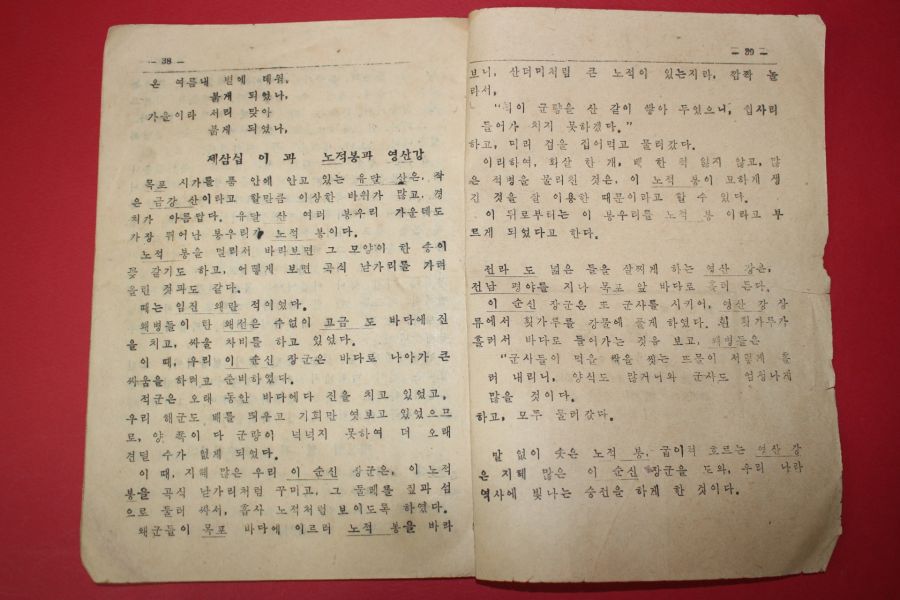 — 38 —
은 여름내 볕에 데워,
붉게 되었나,
가을이라 서리 맞아
붉게 되었나,
제삼십 이 과 노적봉과 영산강
목포 시가를 품 안에 안고 있는 유달 산은, 작
은 금강 산이라고 할만큼 이상한 바위가 많고, 경
치가 아름답다. 유달 산 여러 봉우리 가운데도
가장 뛰어난 봉우리가 노적 봉이다.
노적 봉을 멀리서 바라보면 그 모양이 한 송이
꽃 같기도 하고, 어떻게 보면 곡식 낟가리를 가려
올린 것과도 같다.
때는 임진 왜란 적이었다.
왜병들이 탄 왜선은 수없이 고금 도 바다에 진
을 치고, 싸울 차비를 하고 있었다.
이 때, 우리 이 순신 장군은 바다로 나아가 큰
싸움을 하려고 준비하였다.
적군은 오래 동안 바다에다 진을 치고 있었고,
우리 해군도 배를 띄우고 기회만 엿보고 있었으므
로, 양 쪽이 다 군량이 넉넉지 못하여 더 오래
견딜 수가 없게 되었다.
이 때, 지혜 많은 우리 이 순신 장군은, 이 노적
봉을 곡식 낟가리처럼 꾸미고, 그 둘레를 짚과 섬
으로 둘러 싸서, 흡사 노적처럼 보이도록 하였다.
왜군들이 목포 바다에 이르러 노적 봉을 바라
— 39 —
보니, 산더미처럼 큰 노적이 있는지라, 깜짝 놀
라서,
"적이 군량을 산 같이 쌓아 두었으니, 섭사리
들어가 치지 못하겠다."
하고, 미리 겁을 집어먹고 물러갔다.
이리하여, 화살 한 개, 배 한 척 잃지 않고, 많
은 적병을 물리친 것은, 이 노적 봉이 묘하게 생
긴 것을 잘 이용한 때문이라고 할 수 있다.
이 뒤로부터는 이 봉우리를 노적 봉 이라고 부
르게 되었다고 한다.
전라 도 넓은 들을 살찌게 하는 영산 강은,
전남 평야를 지나 목포 앞 바다로 흘러 든다.
이 순신 장군은 또 군사를 시키어, 영산 강 상
류에서 횟가루를 강물에 풀게 하였다. 흰 횟가루가
흘러서 바다로 들어가는 것을 보고, 왜병들은
"군사들이 먹을 쌀을 씻는 뜨물이 저렇게 흘
러 내리니, 양식도 많거니와 군사도 엄청나게
많을 것이다.
하고, 모두 물러갔다.
말 없이 솟은 노적 봉, 굽이쳐 흐르는 영산 강
은 지혜 많은 이 순신 장군을 도와, 우리 나라
역사에 빛나는 승전을 하게 한 것이다.